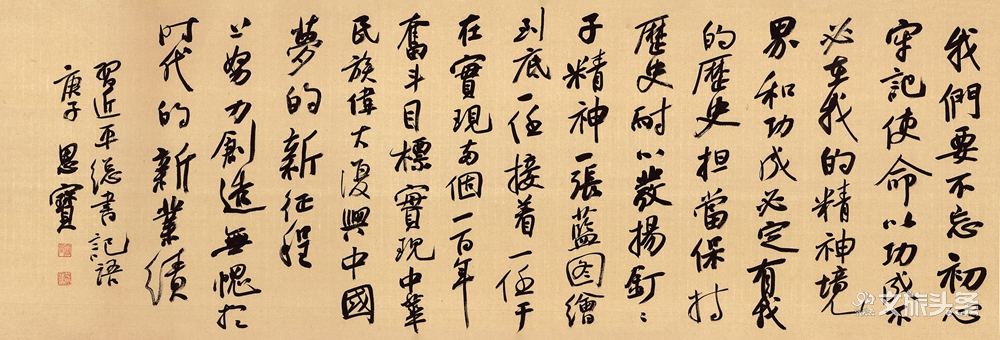 我們要不忘初心
牢記使命以功成不
必在我的精神境
界和功成必定有我
的歷史担當保持
歷史耐心發揚釘〻
子精神一張藍图繪
到底一任接着一任干
在實現两個一百年
奮斗目標實現中華
民族偉大復興中國
夢的新征程
上努力創造無愧於
时代的新業績
習近平總書記語
庚子 思寶
文旅头条